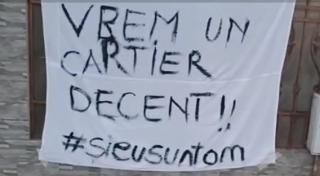 VREM UN
CARTIER
DECENT!!
#sieusuntom